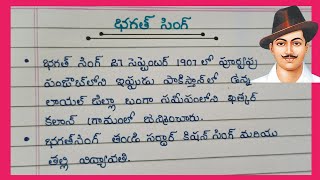 భగత్ సింగ్
• భగత్ సింగ్ 27 సెప్టెంబర్ 1907 లో పూర్వపు
పంజాబ్‌లోని ఇప్పుడు పాకిస్తాన్‌లో ఉన్న
లాయల్ జిల్లా బంగా సమీపంలోని ఖత్కర్
కలాన్ గ్రామంలో జన్మించారు.
• భగత్‌సింగ్ తండ్రి సర్దార్ కిషన్ సింగ్ మరియు
తల్లి విద్యావతి.